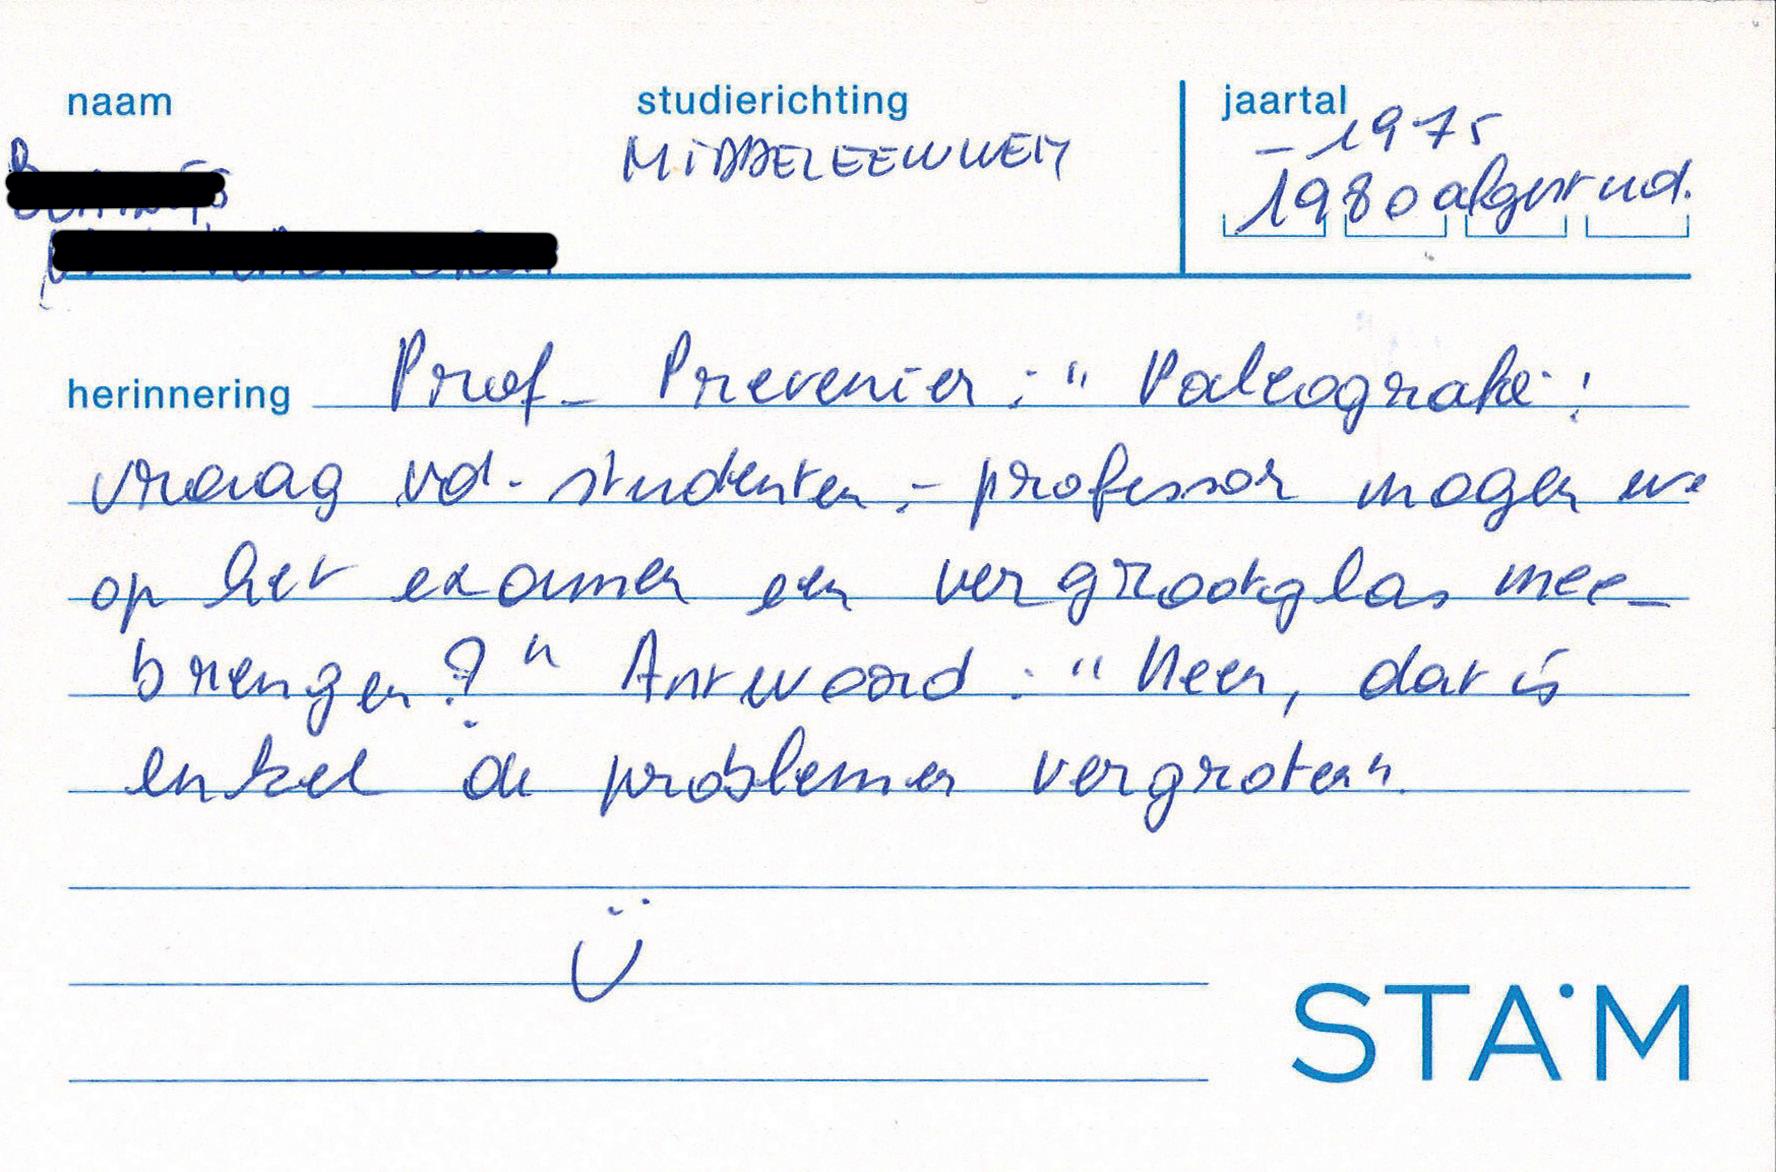 naam
studierichting
jaartal
MIDDELEEUWEN
- 1975
1980 afgestud.
herinnering Prof. Prevenier : " Paleografie" :
vraag vd. studenten :- professor mogen we
op het examen een vergrootglas mee-
brengen ? " Antwoord : " Neen, dat is
enkel de problemen vergroten".
STAM